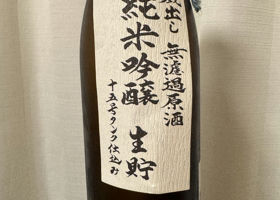 出し 無濾過原酒
純米吟醸 生貯
十五号タンク仕込み